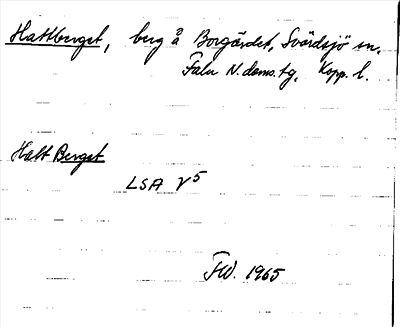 Hattberget, berg å Borgärdet, Svärdsjö sn.
Falu N. doms. tg, Kopp. l.
Hatt Berget
LSA V5
FW. 1965